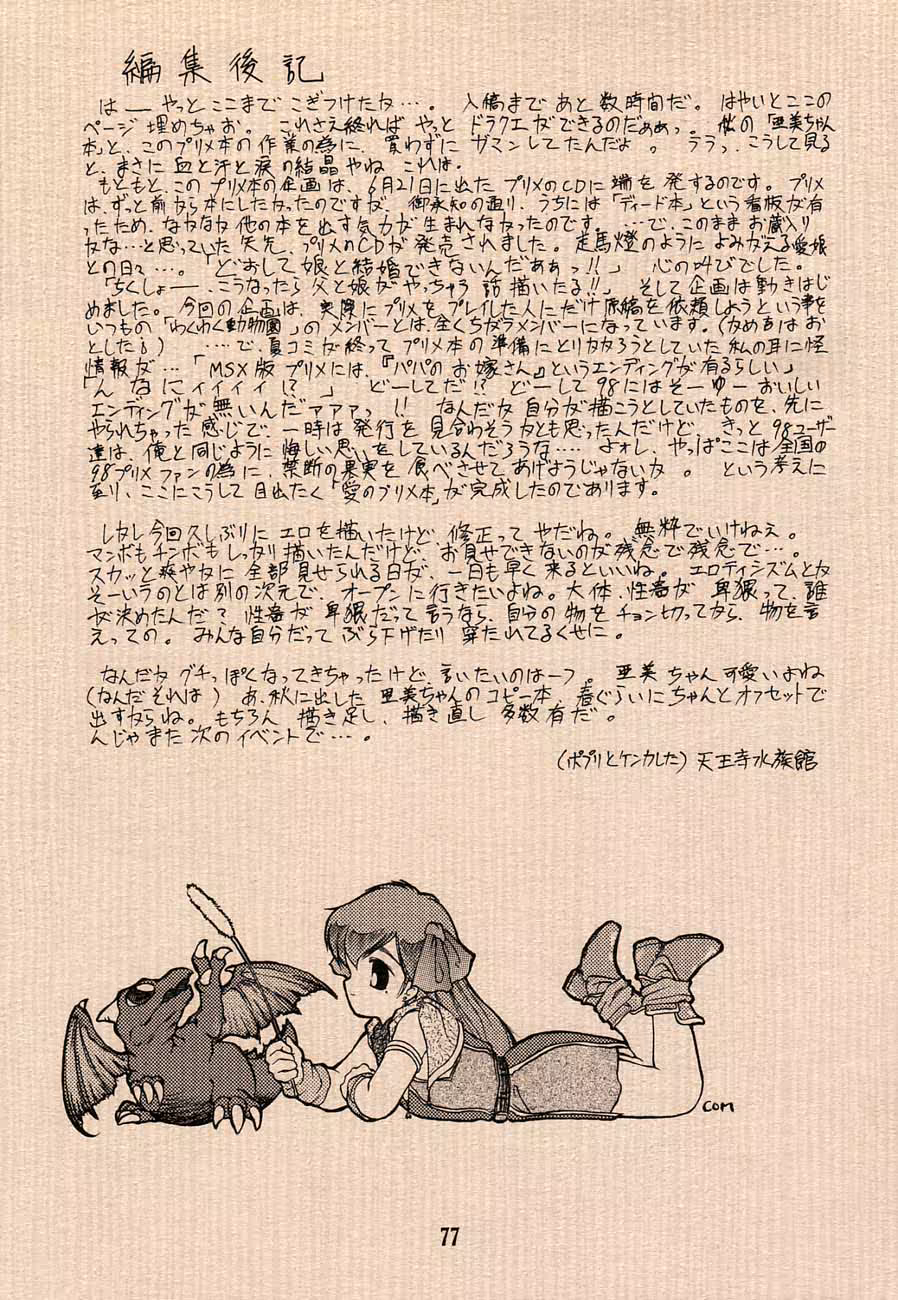 編集後記
は――やっとここまで こぎつけたな…。 入稿まで あと 数時間だ。 はやいとここの
ページ 埋めちゃお。 これさえ終れば やっと ドラクエができるのだぁぁっ。 松の「亜美ちゃん
本」と、このプリメ本の 作業の為に、買わずに ガマンしてたんだよ。 ううっ、こうして見る
と、まさに 血と汗と涙の結晶やね これは。
もともと、この プリメ本の企画は、6月21日に出た プリメのCDに 端を 発するのです。 プリメ
は、ずっと前から本にしたかったのですが、御承知の通り、うちには「ディード本」という看板が有
ったため、なかなか 他の本を 出す気力が 生まれなかったのです。 …で、このまま お蔵入り
かな…と思っていた矢先、プリメのCDが 発売されました。走馬燈のように よみがえる愛娘
との日々…。「どおして娘と結婚できないんだぁぁっ!!」 心の叫びでした。
「ちくしょ――、こうなったら父と娘がやっちゃう話描いたる!!」 そして企画は動きはじ
めました。今回の企画は、実際にプリメをプレイした人にだけ原稿を依頼しようという事を
いつもの「わくわく動物園」のメンバーとは、全くちがうメンバーになっています。(かめ吉はお
とした) …で、夏コミが終って プリメ本の準備に とりかかろうとしていた 私の耳に怪
情報が…「MSX版 プリメには、『パパの お嫁さん』というエンディングが有るらしい」
「んなにィィィィ!?」 どーしてだ!? どーして98にはそーゆーおいしい
エンディングが無いんだァァァっ!! なんだか自分が描こうとしていたものを、先に
やられちゃった感じで、一時は発行を見合わそうかとも思ったんだけど、きっと98ユーザー
達は、俺と同じように 悔しい思いをしているんだろうな…。よォし、やっぱここは全国の
98プリメファンの為に、禁断の果実を食べさせてあげようじゃないか。 という考えに
至り、ここにこうして目出たく「愛のプリメ本」が完成したのであります。
しかし今回久しぶりにエロを描いたけど、修正ってやだね。無粋でいけねぇ。
マンボもチンボもしっかり描いたんだけど、お見せできないのが残念で残念で…。
スカッと爽やかに全部見せられる日が、一日も早く来るといいね。エロティシズムとか
そーいうのとは別の次元で、オープンに行きたいよね。大体、性器が卑猥って、誰
が決めたんだ? 性器が卑猥だって言うなら、自分の物をチョン切ってから、物を言
えっての。みんな自分だってぶら下げたり穿たれてるくせに。
なんだかグチっぽくなってきちゃったけど、言いたいのは一つ。亜美ちゃん可愛いよね
(なんだそれは) あ、秋に出した亜美ちゃんのコピー本、春ぐらいにちゃんとオフセットで
出すからね。もちろん 描き足し、描き直し 多数有だ。
んじゃまた次のイベントで…。
(ポプリとケンカした) 天王寺水族館
COM
77